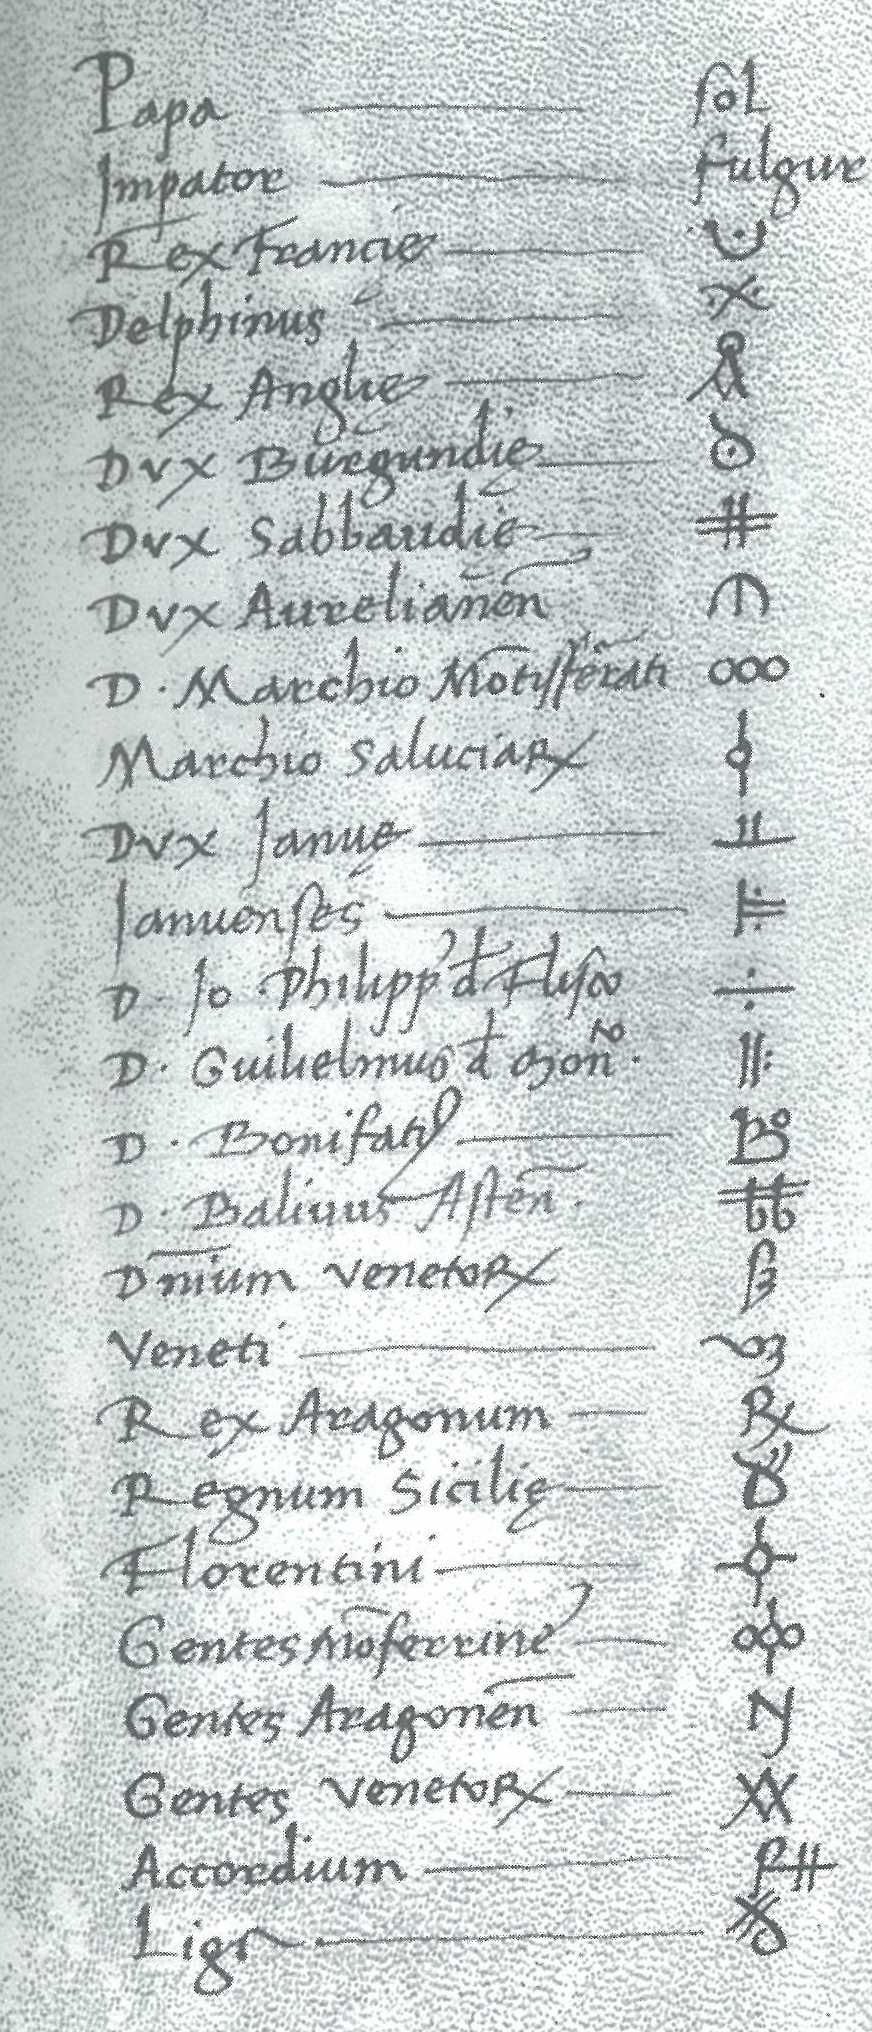 Papa sol
Impator fulgur
Rex Francie
Delphinus
Rex Anglie
Dvx Burgundie
Dvx Sabbaudie
Dvx Aurelianen
D. Marchio
Marchio Saluciaꝝ
Dvx Janue
Januenses
D. Jo. Philipp
D. Guilielmus
D. Bonifati
D. Balivus Asten.
Dnium Venetoꝝ
Veneti
Rex Aragonum
Regnum Sicilię
Florentini
Gentes Moferrine
Gentes Aragonen
Gentes Venetoꝝ
Accordium
Liga